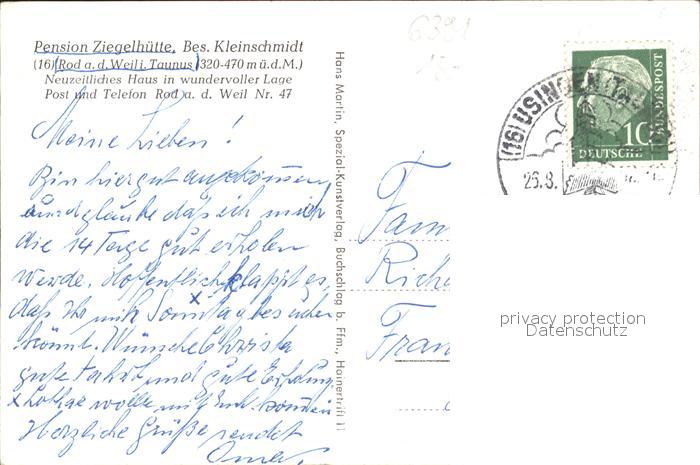 Pension Ziegelhütte, Bes. Kleinschmidt
(16) (Rod a. d. Weil i. Taunus) (320-470 m ü. d. M.)
Neuzeitliches Haus in wundervoller Lage
Post und Telefon Rod a. d. Weil Nr. 47
Meine Lieben!
Bin hier gut angekommen
und glaube daß ich mich
die 14 Tage gut erholen
werde. Hoffentlich klappt es,
daß Ihr mich Sonntag besuchen
könnt. Wünsche Christa
gute Fahrt und gute Erholung
x Lothar wollte mit Euch kommen
Herzliche Grüße sendet
Oma.
Hans Martin, Spezial-Kunstverlag, Buchschlag b. Ffm., Hainertrift 11
6391
18-
(16) USINGEN (Ts
26.8.
10
DEUTSCHE
BUNDESPOST
Fam
Riche
Fran
privacy protection
Datenschutz